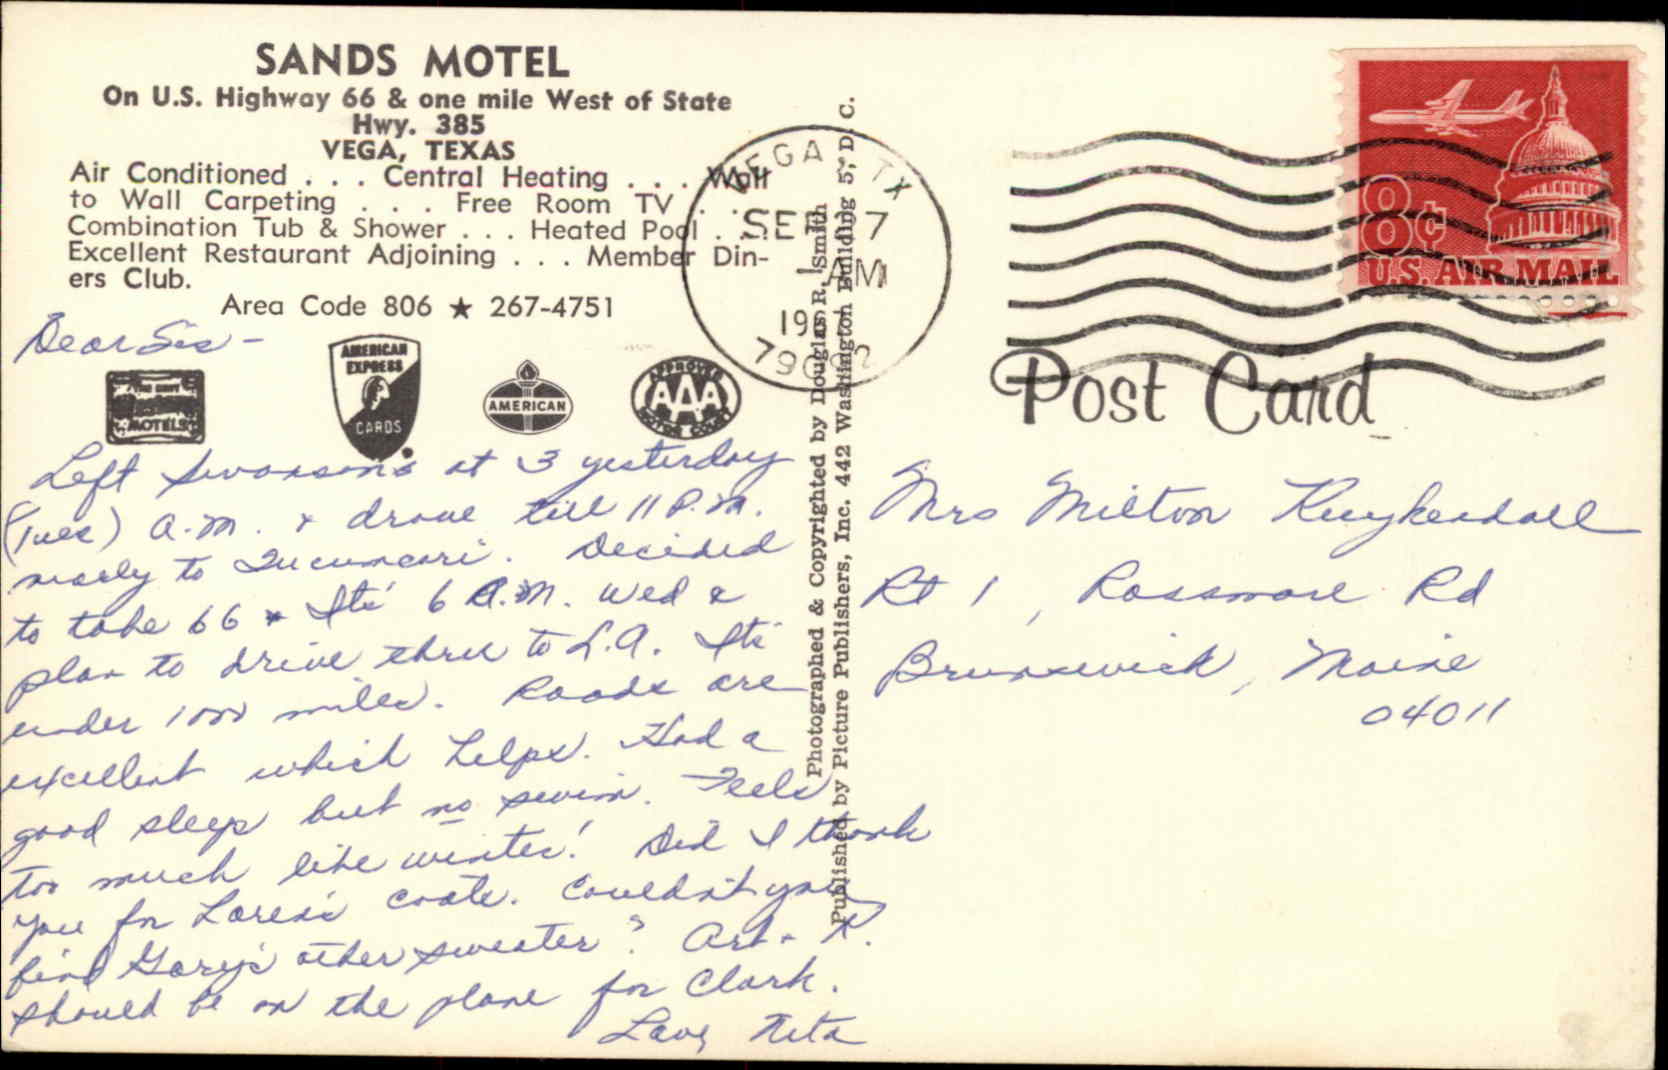 SANDS MOTEL
On U.S. Highway 66 & one mile West of State
Hwy. 385
VEGA, TEXAS
Air Conditioned . . . Central Heating . . . Wall
to Wall Carpeting . . . Free Room TV . . .
Combination Tub & Shower . . . Heated Pool . . .
Excellent Restaurant Adjoining . . . Member Din-
ers Club.
Area Code 806 ★ 267-4751
Dear Sis -
MOTELS
AMERICAN
EXPRESS
CARDS
AMERICAN
APPROVED
AAA
MOTOR COURT
Left Swansons at 3 yesterday
(Tues) A.M. & drove till 11 P.M.
nearly to Tucumcari. Decided
to take 66 & Its' 6 A.M. Wed &
plan to drive thru to L.A. Its'
under 1000 miles. Roads are
excellent which helps. Had a
good sleep but no swim. Feels
too much like winter! Did I thank
you for Loren's coats. Couldn't you
find Gary's other sweater? Art & K.
should be on the plane for Clark.
Love, Neta
Photographed & Copyrighted by Douglas R. Smith
Published by Picture Publishers, Inc. 442 Washington Building 5, D. C.
VEGA, TX
SEP 7
AM
79092
8¢
U.S. AIR MAIL
Post Card
Mrs Milton Kuykendall
Rt 1, Rossmore Rd
Brunswick, Maine
04011